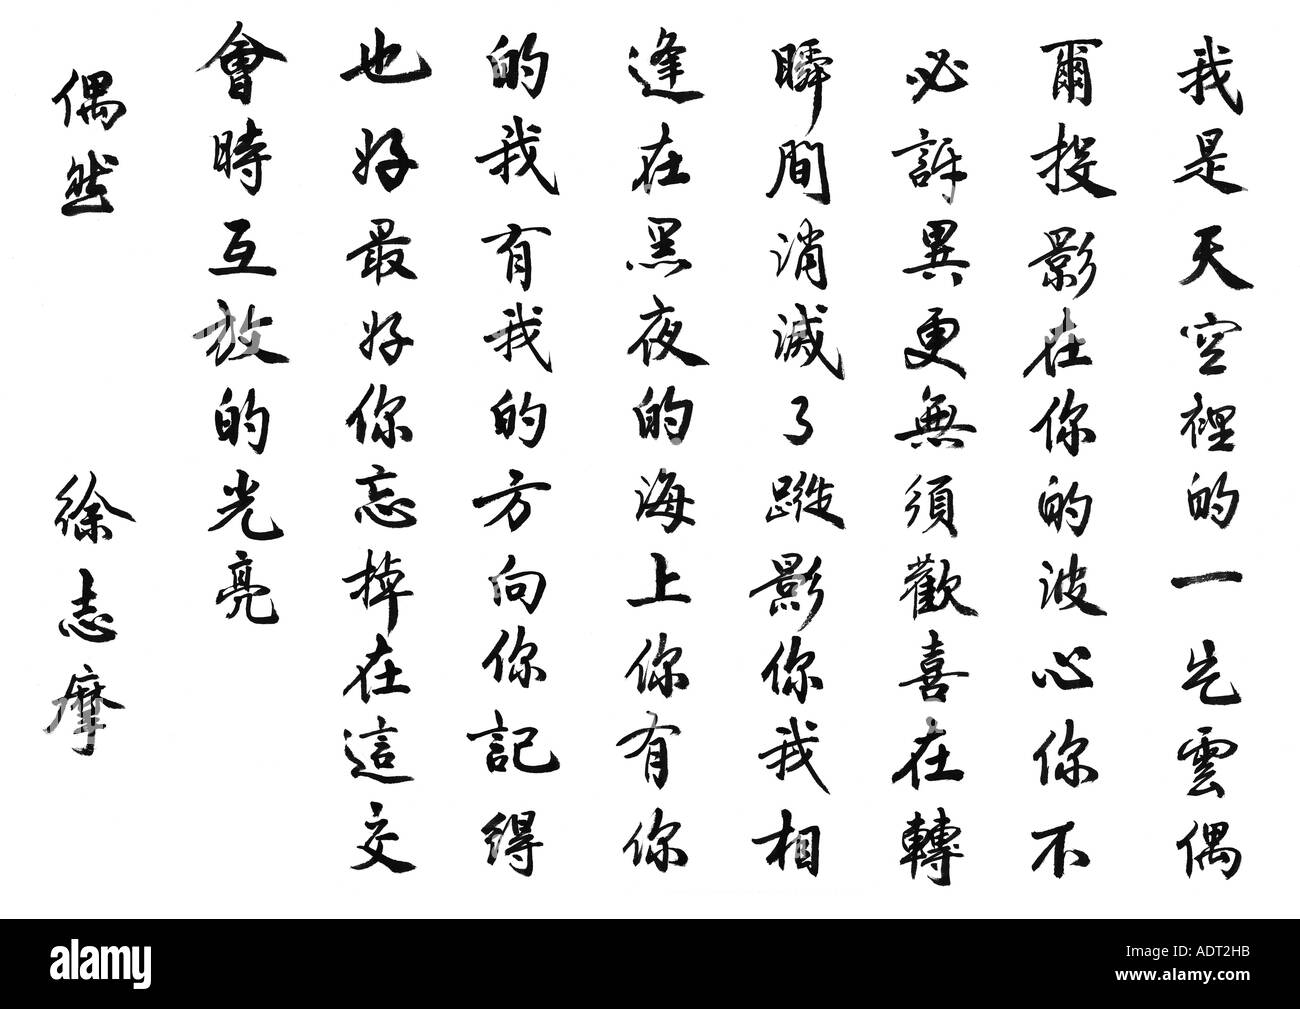 我是天空裡的一片雲偶
爾投影在你的波心你不
必訝異更無須歡喜在轉
瞬間消滅了蹤影你我相
逢在黑夜的海上你有你
的我有我的方向你記得
也好最好你忘掉在這交
會時互放的光亮
偶然 徐志摩
alamy
Image ID: ADT2HB
www.alamy.com